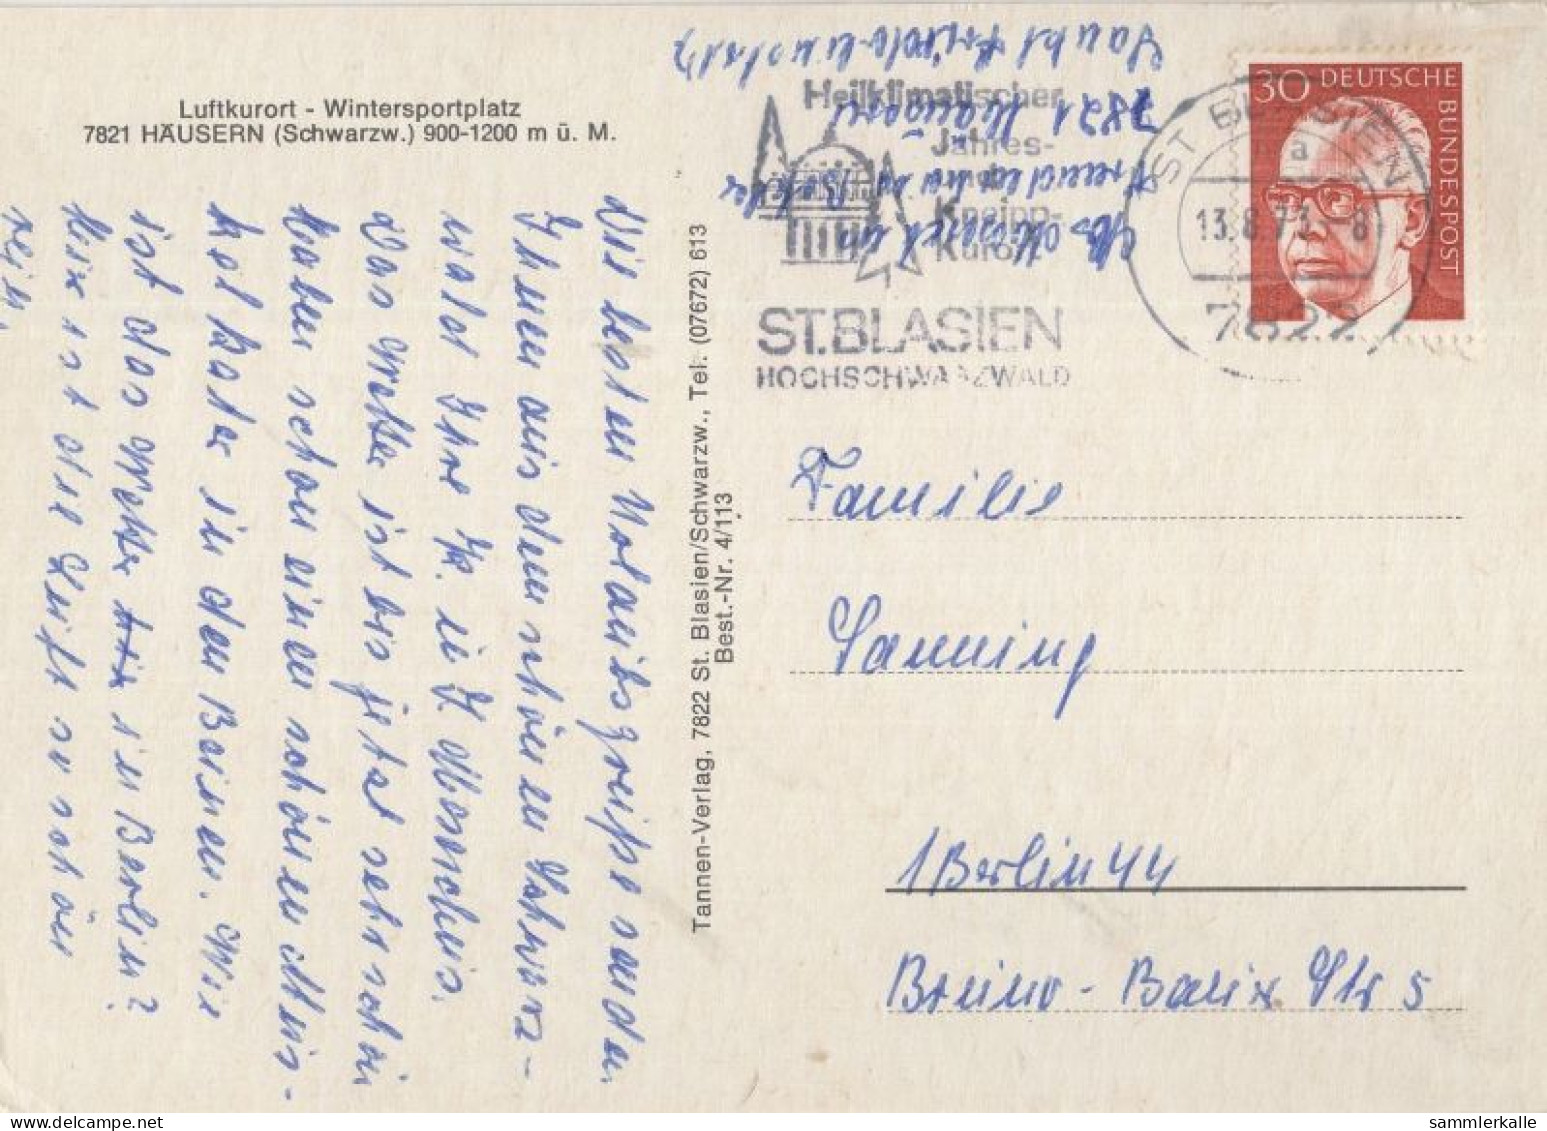 Luftkurort - Wintersportplatz
7821 HÄUSERN (Schwarzw.) 900-1200 m ü. M.
Die besten Urlaubsgrüße senden
Ihnen aus dem schönen Schwarz-
wald Ihre
Das Wetter ist bis jetzt sehr schön
haben schon einen schönen
hol Kater in den Beinen. Wie
ist das Wetter in Berlin?
hier ist die Luft so schön
rein.
Tannen-Verlag, 7822 St. Blasien/Schwarzw., Tel. (07672) 613
Best.-Nr. 4/113
7821 Häusern
Heilklimatischer
Jahres-
Kneipp-
Kurort
ST. BLASIEN
HOCHSCHWARZWALD
ST BLASIEN
a
13.8.71 - 8
7822
30 DEUTSCHE
BUNDESPOST
Familie
Lanning
1 Berlin 44
Bruno-Bauer Str 5
sammlerkalle